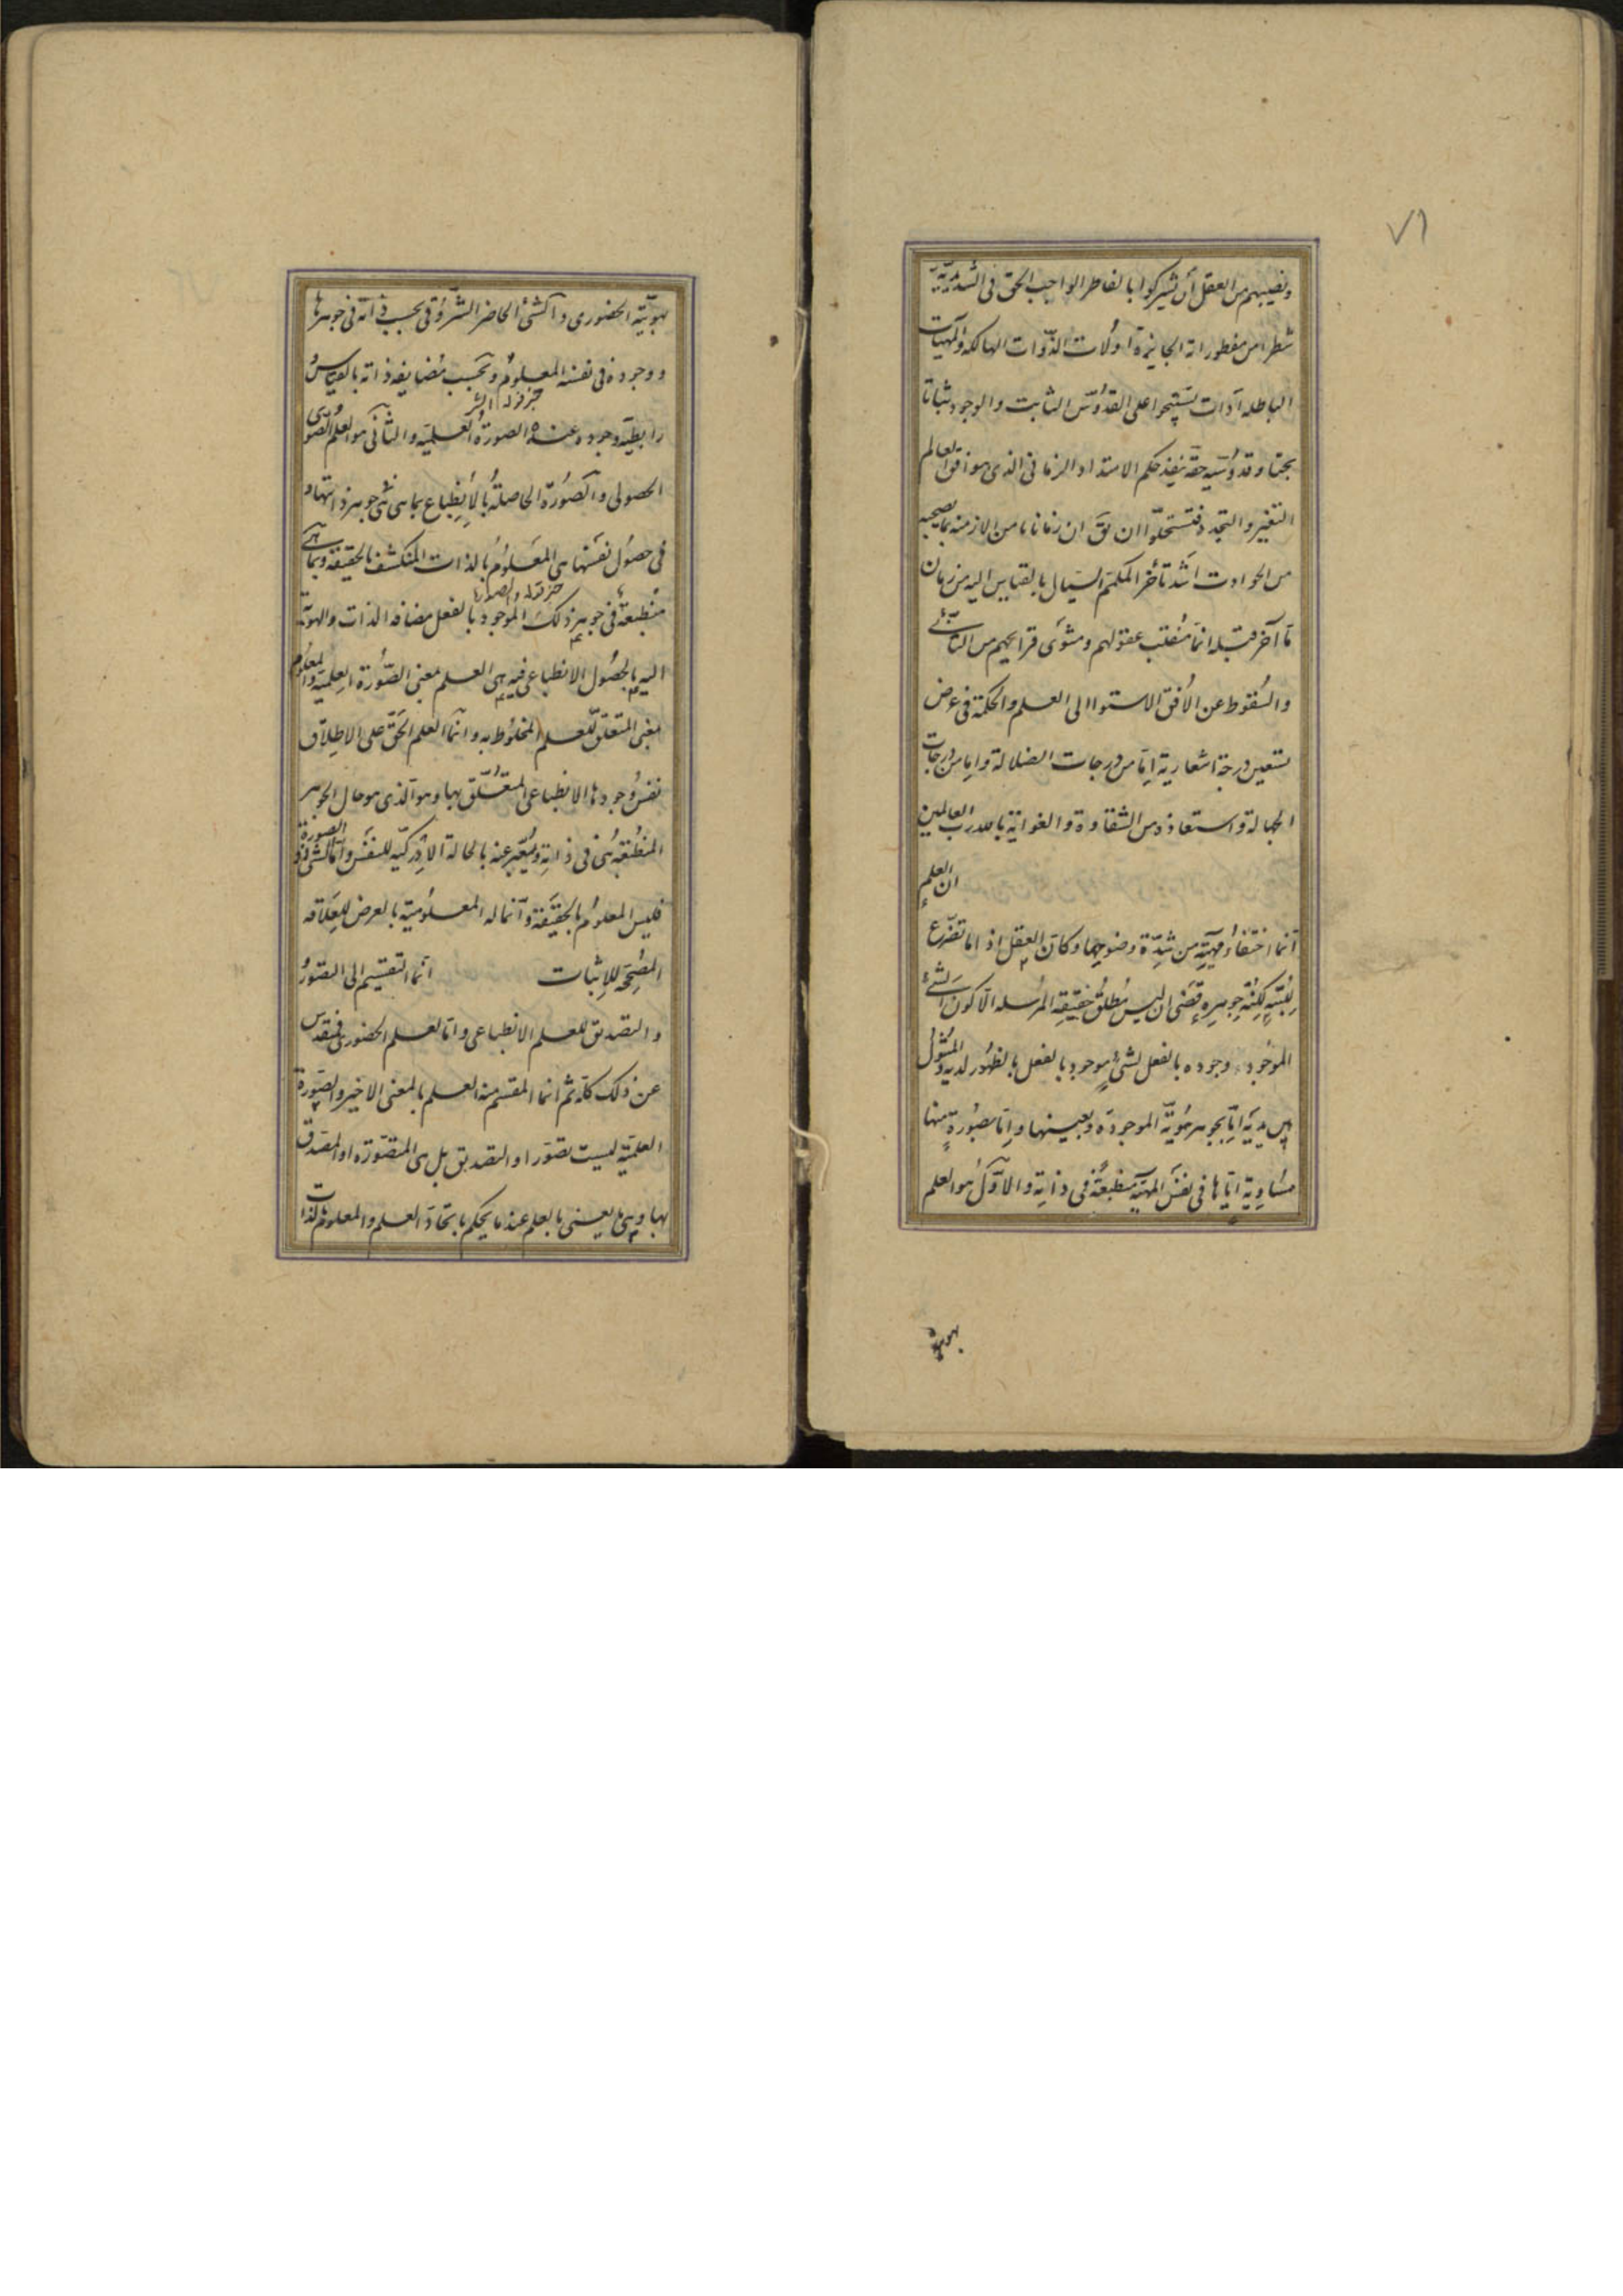 ٧٦
ونصيبهم من العقل أن يشركوا بالفاطر الواجب الحق فى السرمدية
شطرا من مفطوراته الجايزة أولات الذوات الهالكة والمهيات
الباطلة أذات تستيحوا على القدوس الثابت والوجود ثباتا
بحتا وقدوسية حقة ينفذ حكم الامتداد الزمانى الذى هو افق العالم
التغير والتجدد فتستحلوا ان يق ان زمانا ما من الازمنة بما يصحبه
من الحوادث اشد تأخر المكمم السيال بالقياس اليه من زمان
ما آخر قبله انما منقلب عقولهم ومثوى قرايحهم من التأبى
والسقوط عن الأفق الاستوا الى العلم والحكمة فى عرض
تسعين درجة اشعارية اما من درجات الضلالة واما من درجات
الجهالة واستعاذ من الشقاوة والغواية بالله رب العالمين
ان العلم
انما اختفاء مهيته من شدة وضوحها وكان العقل اذ اما تضرع
لكنه جوهره قضى ان ليس مطلق حقيقة المرسلة الا كون الشئ
الموجود وجوده بالفعل لشئ موجود بالفعل بالظهور لديه والمثول
بين يديه اما بجوهر هوية الموجودة وبعينها واما بصورة منها
مساوية اياها فى نفس المهية منطبعة فى ذاته والأول هو العلم
بهوية
بهويته الحضورى والشئ الحاضر الشروقى بحسب ذاته فى جوهرها
ووجوده فى نفسه المعلوم وبحسب مضايفة ذاته بالقياس
رابطية وجوده عنده الصورة العلمية والثانى هو العلم الصورى
خبر قوله الشئ
الحصولى والصورة الحاصلة بالأنطباع بما هى شئ جوهر ذاتها و
فى حصول نفسها هى المعلوم بالذات المنكشف بالحقيقة وبما هى
خبر قوله والصورة
منطبعة فى جوهر ذلك الموجود بالفعل مضافة الذات والهوية
اليه بالحصول الانطباعى فيه هى العلم معنى الصورة العلمية والمعلوم
معنى المتعلق للعلم المخلوط به وانما العلم الحق على الاطلاق
نفس وجودها الانطباعى المتعلق بها وهو الذى هو حال الجوهر
المنطبعة هى فى ذاته ويعبر عنه بالحالة الادركية للنفس واما الشئ ذو الصورة
فليس المعلوم بالحقيقة وانما له المعلومية بالعرض للعلاقة
المصححة للإثبات انما التقسيم الى التصور
والتصديق للعلم الانطباعى واما العلم الحضورى فمتقدس
عن ذلك كله ثم انما المقسم منه العلم بالمعنى الاخير والصورة
العلمية ليست تصورا والتصديق بل هى المتصورة او المصدق
بها وهى ما يعنى بالعلم عند ما يحكم باتحاد العلم والمعلوم بالذات